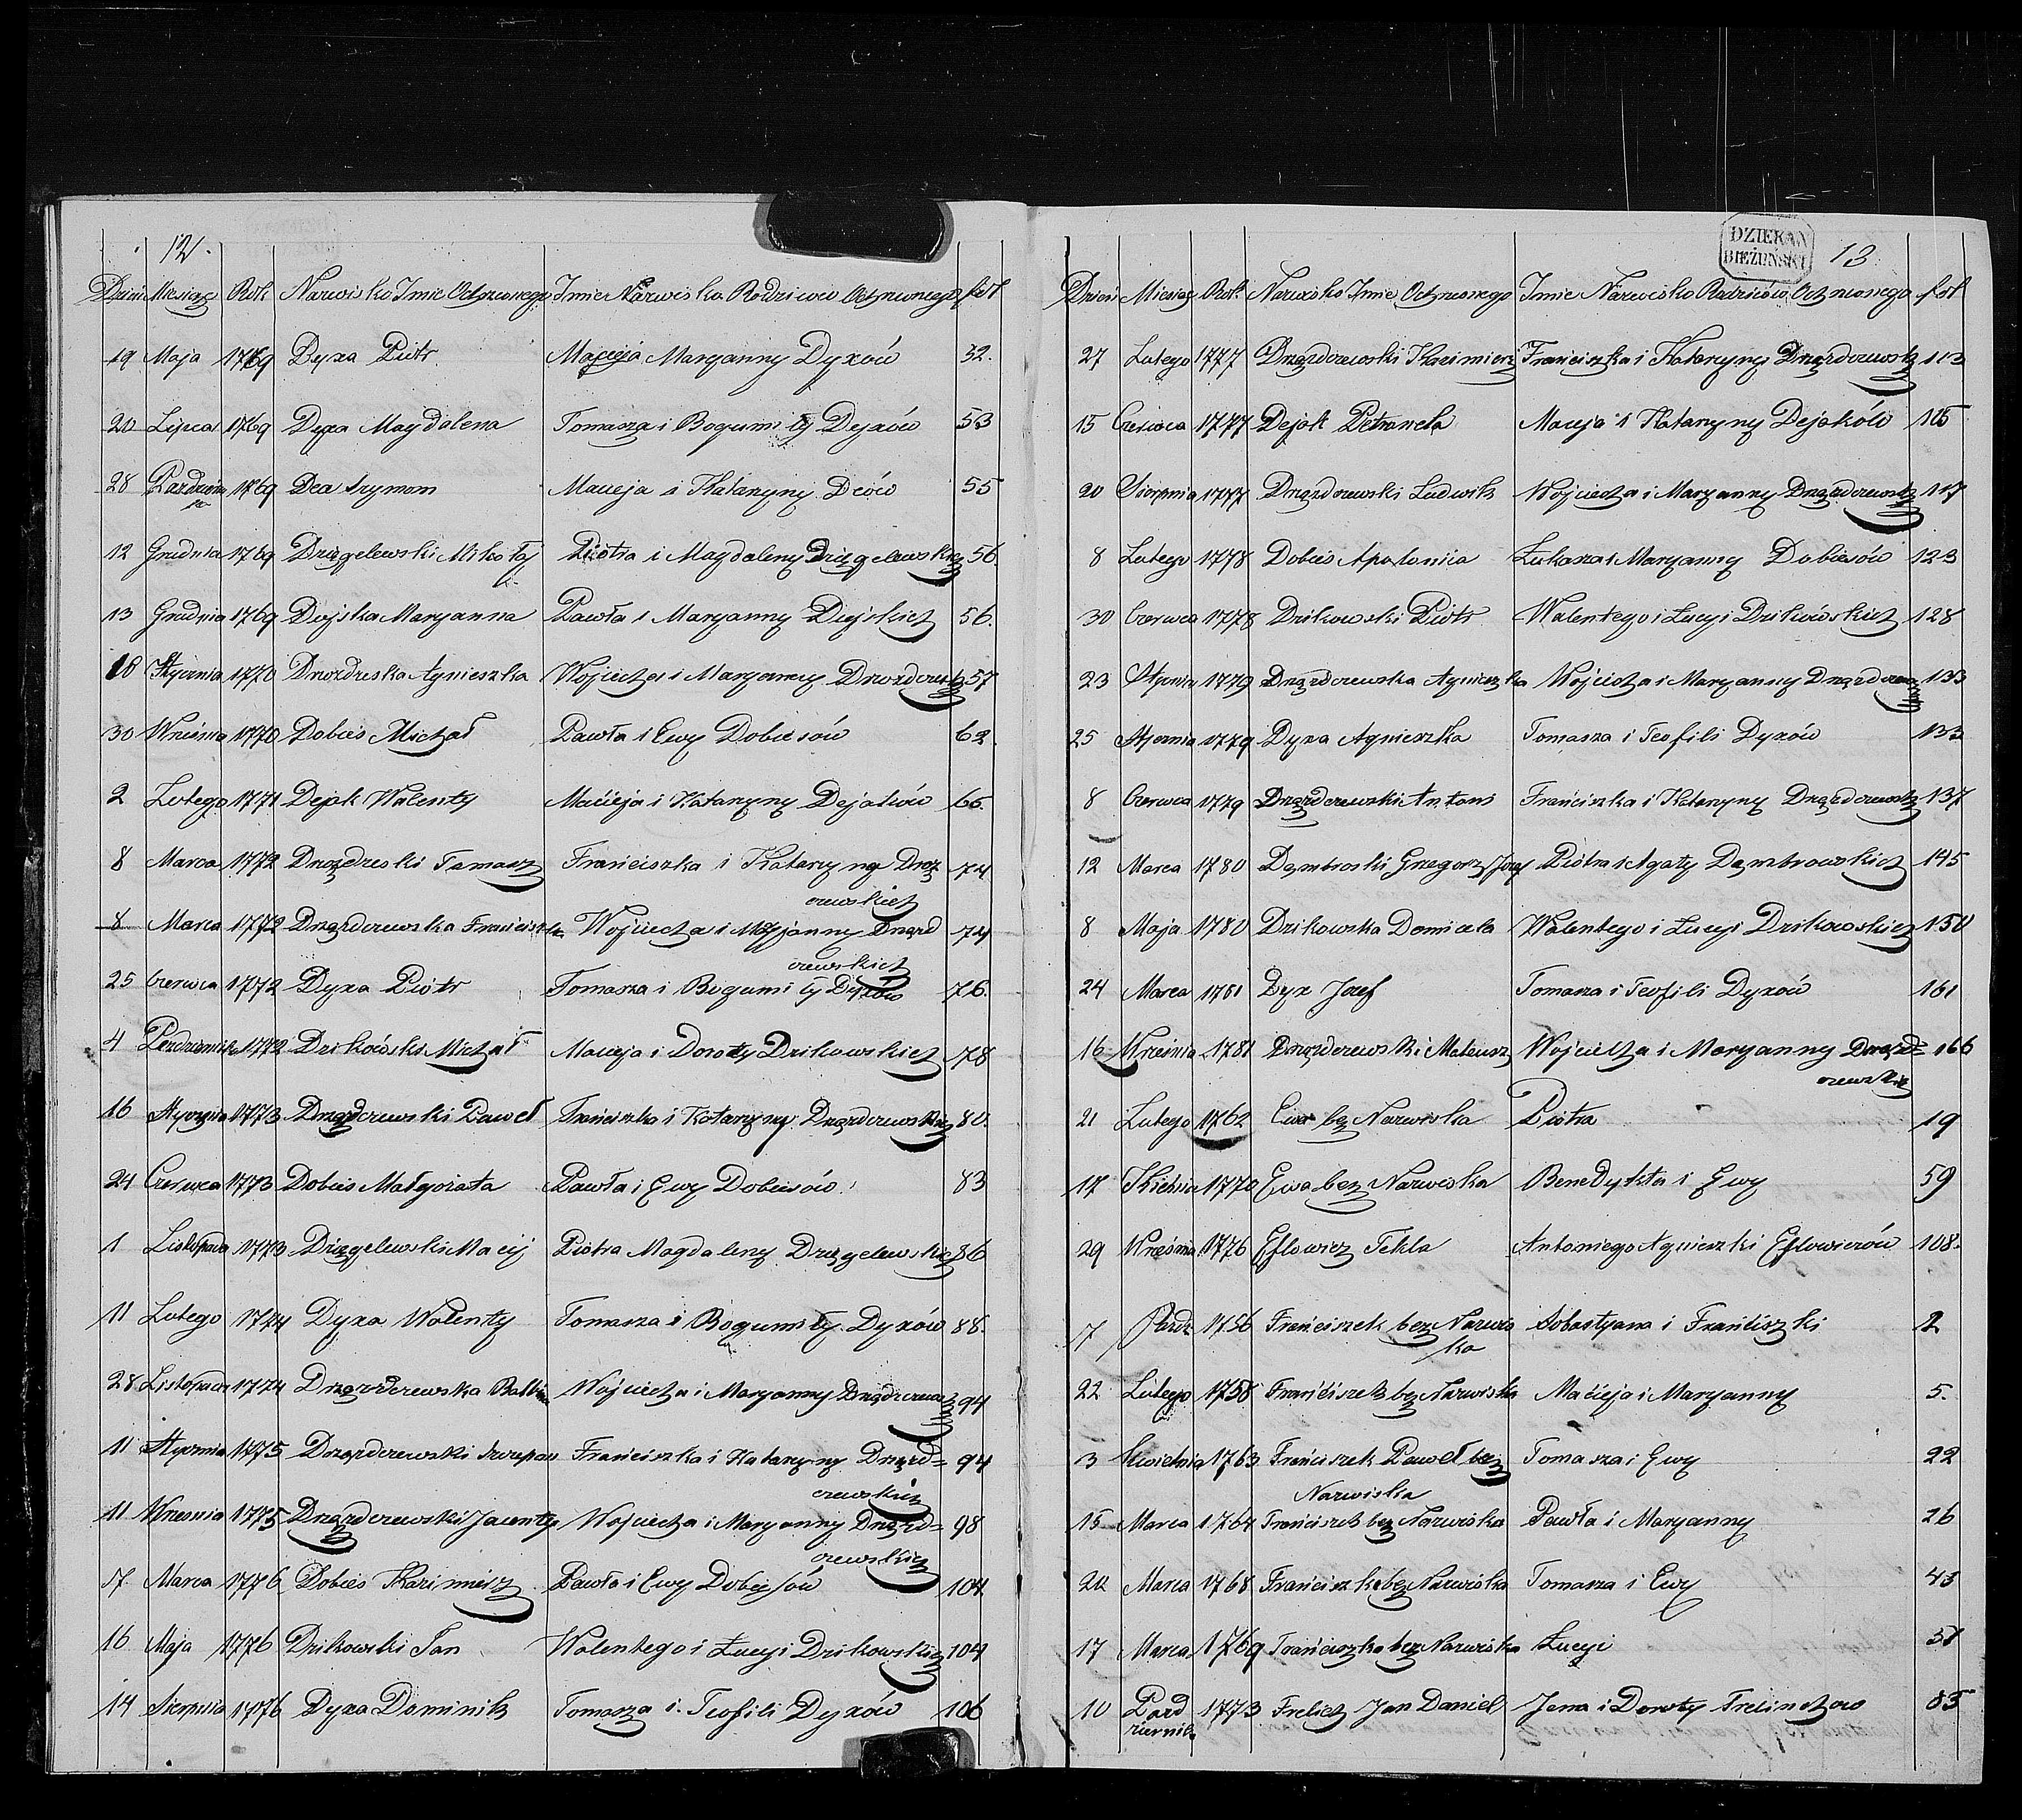 12.
Dzień Miesiąc Rok Nazwisko Imie Ochrzconego Imie Nazwiska Rodziców Ochrzconego fol
19 Maja 1769 Dyxa Piotr Macieja Maryanny Dyxów 32.
20 Lipca 1769 Dyxa Magdalena Tomasza i Bogumiły Dyxów 53
28 Pazdziernika 1769 Dea Szymon Macieja i Katarzyny Deów 55
12 Grudnia 1769 Drzęgelewski Mikołaj Piotra i Magdaleny Drzęgelewskich 56.
13 Grudnia 1769 Dujska Maryanna Pawła i Maryanny Dujskich 56.
18 Stycznia 1770 Drozdzeska Agnieszka Wojciecha i Maryanny 57
30 Wrzśnia 1770 Dobies Michał Pawła i Ewy Dobiesów 62.
2 Lutego 1771 Dejak Walenty Macieja i Katarzyny Dejaków 66.
8 Marca 1772 Tomasz Franciszka i Katarzyny 74
8 Marca 1772 Drążdzewska Franciszka Wojciecha i Maryjanny Drążdzewskich 74
25 Czerwca 1772 Dyxa Piotr Tomasza i Bogumiły Dyxów 76.
4 Pazdziernika 1772 Dzikówski Michał Macieja i Doroty Dzikowskich 78
16 Stycznia 1773 Drążdzewski Paweł Franciszka i Katarzyny Drążdzewskich 80.
24 Czerwca 1773 Dobies Małgorzata Pawła i Ewy Dobiesów 83
1 Listopada 1773 Drzęgelewski Maciej Piotra Magdaleny Drzęgelewskich 86
11 Lutego 1774 Dyxa Walenty Tomasza i Bogumiły Dyxów 88.
28 Listopada 1774 Drążdzewska Balbina Wojciecha i Maryanny Drążdzewskich 94
11 Stycznia 1775 Drążdzewski Szczepan Franciszka i Katarzyny Drążd=
zewskich 94
11 Wrzesnia 1775 Drążdzewski Jacenty Wojciecha i Maryanny Drążd=
zewskich 98
17. Marca 1776 Dobies Kazimierz Pawła i Ewy Dobiesów 104
16 Maja 1776 Dzikowski Jan Walentego i Łucyi Dzikowskich 104
14 Sierpnia 1776 Dyxa Dominik Tomasza i Teofili Dyxów 106
DZIEKAN
BIEŻUŃSKI
13
Dzień Miesiąc Rok Nazwisko Imie Ochrzconego Imie Nazwisko Rodziców Ochrzconego fol
27 Lutego 1777 Drążdzewski Kazimierz Franciszka i Katarzyny Drążdzewskich 113
15 Czerwca 1777 Dejak Petronela Macieja i Katarzyny Dejaków 115
20 Sierpnia 1777 Drążdzewski Ludwik Wojciecha i Maryanny Drążdzewskich 117
8 Lutego 1778 Dobies Apolonia Łukasza i Maryanny Dobiesów 123
30 Czerwca 1778 Dzikowski Piotr Walentego i Łucyi Dzikówskich 128
23 Stycznia 1779 Drążdzewska Agnieszka Wójciecha i Maryanny Drążdzewskich 133
25 Stycznia 1779 Dyxa Agnieszka Tomasza i Teofili Dyxów 133
8 Czerwca 1779 Drążdzewski Antoni Franciszka i Katarzyny Drążdzewskich 137
12 Marca 1780 Dąmbroski Grzegorz Józef Piotra i Agaty Dąmbrowskich 145
8 Maja 1780 Dzikowska Domicela Walentego i Łucyi Dzikowskich 150
24 Marca 1781 Dyx Jozef Tomasza i Teofili Dyxów 161
16 Września 1781 Drążdzewski Mateusz Wojciecha i Maryanny Drążd=
zewskich 166
21 Lutego 1762 Ewa bez Nazwiska Piotra 19
17 1770 Ewa bez Nazwiska Benedykta i Ewy 59
29 Wrzesnia 1776 Eflowicz Tekla Antoniego Agnieszki Eflowiczów 108.
7 Pazdz 1756 Franciszek bez Nazwis
ka Sobastyana i Franciszki 2
22 Lutego 1758 Franciszek bez Nazwiska Macieja i Maryanny 5.
3 Kwietnia 1763 Franciszek Paweł bez
Nazwiska Tomasza i Ewy 22
15 Marca 1764 Franciszek bez Nazwiska Pawła i Maryanny 26
22 Marca 1768 Franciszka bez Nazwiska Tomasza i Ewy 43
17 Marca 1769 Franciszka bez Nazwiska Łucyi 51
10 Pazd
ziernik. 1773 Frelich Jan Daniel Jana i Doroty 85